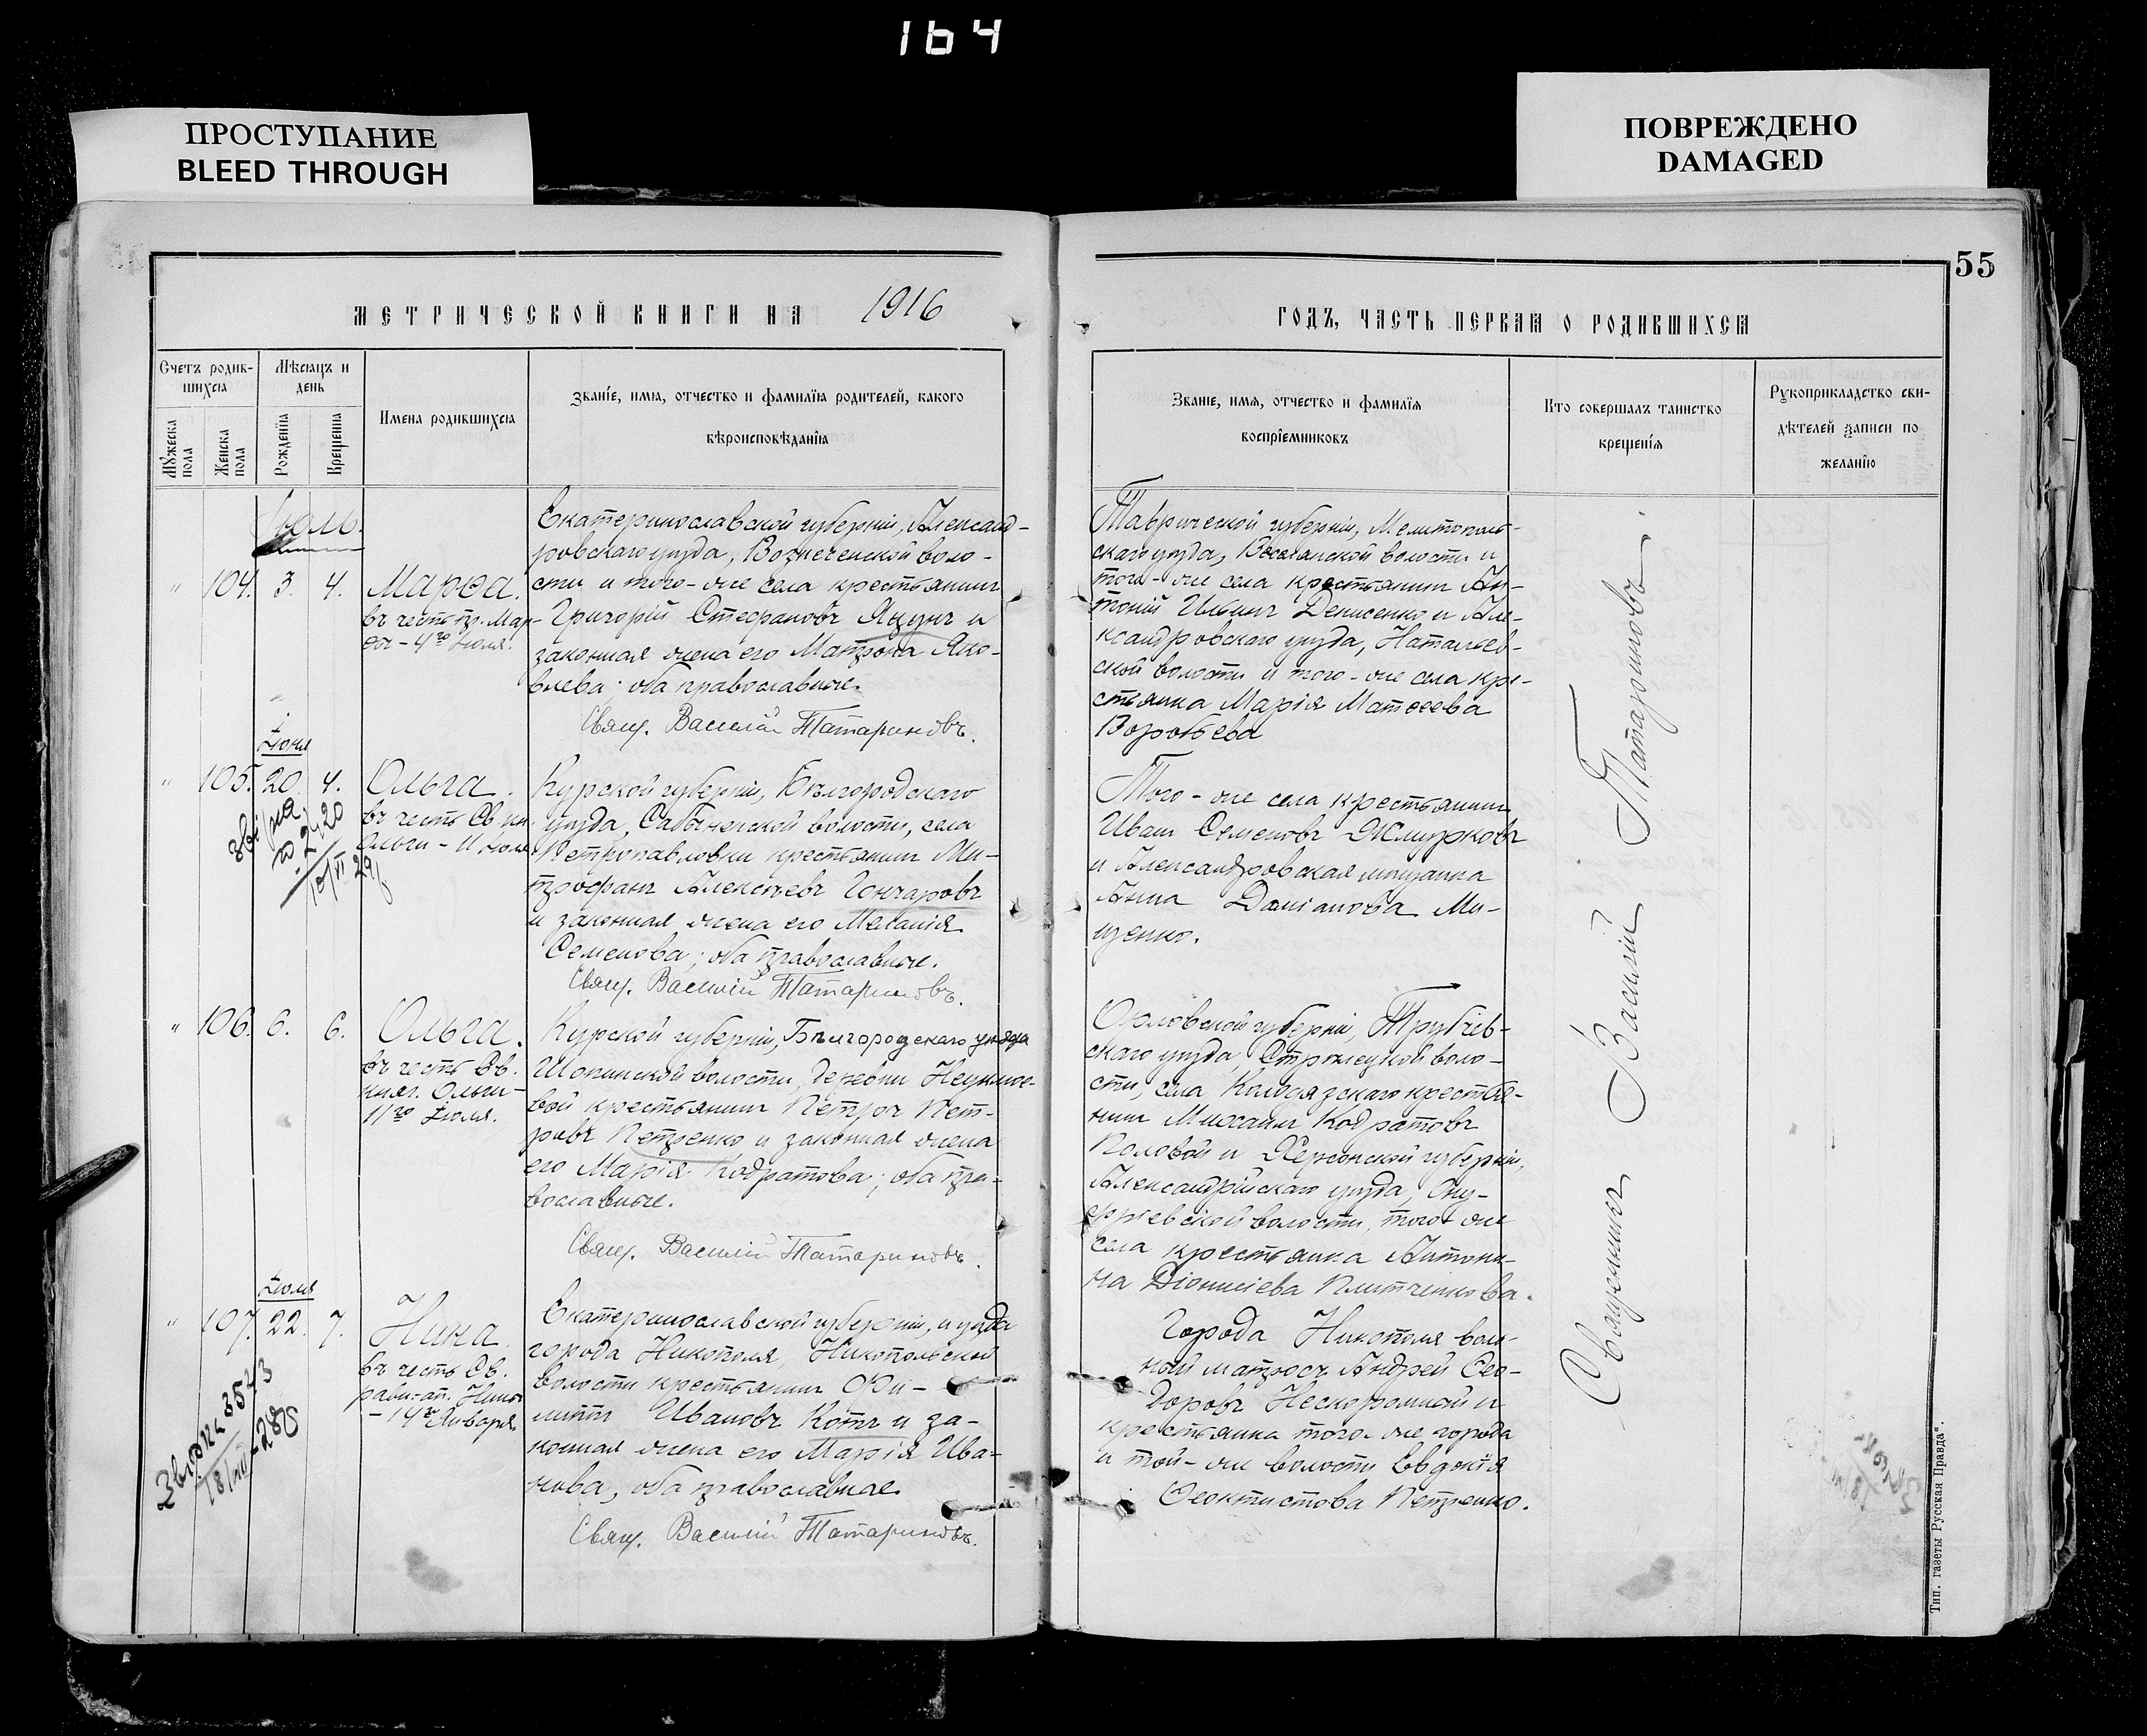 164
ПРОСТУПАНИЕ
BLEED THROUGH
ПОВРЕЖДЕНО
DAMAGED
55
МЕТРИЧЕСКОЙ КНИГИ НА 1916
ГОДЪ, ЧАСТЬ ПЕРВАЯ О РОДИВШИХСЯ
Счетъ родив-
шихся
Мужеска пола
Женска пола
Мѣсяцъ и
день
Рожденія
Крещенія
Имена родившихся
Званіе, имя, отчество и фамилія родителей, какого
вѣроисповѣданія
Званіе, имя, отчество и фамилія
воспріемниковъ
Кто совершалъ таинство
крещенія
Рукоприкладство сви-
дѣтелей записи по
желанію
Іюль.
" 104. 3. 4. Марѳа.
въ честь пр. Мар-
ѳы - 4го Іюля.
Екатеринославской губерніи, Александ-
ровскаго уѣзда, Вознесенской воло-
сти и того-же села крестьянинъ
Григорій Стефановъ Яцунъ и
законная жена его Матрона Яко-
влева; оба православные.
Свящ. Василій Татариновъ.
Таврической губерніи, Мелитополь-
скаго уѣзда, волости и
того-же села крестьянинъ Ан-
тоній Ильинъ Денисенко и Але-
ксандровскаго уѣзда, Натальев-
ской волости и того-же села кре-
стьянка Марія Матѳеева
Воробьева
Іюня
" 105. 20. 4. Ольга.
въ честь Св. кн.
Ольги - 11 Іюля
Курской губерніи, Бѣлгородскаго
уѣзда, волости, села
Петропавловки крестьянинъ Ми-
трофанъ Алексѣевъ Гончаровъ
и законная жена его Меланія
Семенова; оба православные.
Свящ. Василій Татариновъ.
Того-же села крестьянинъ
Иванъ Семеновъ Жмурковъ
и Александровская мѣщанка
Анна Даміанова Ми-
щенко.
" 106. 6. 6. Ольга.
въ честь Св.
княг. Ольги -
11го Іюля.
Курской губерніи, Бѣлгородскаго уѣзда
Шопинской волости, деревни
вой крестьянинъ Петръ Пет-
ровъ Петренко и законная жена
его Марія Кодратова; оба пра-
вославные.
Свящ. Василій Татариновъ.
Орловской губерніи, Трубчев-
скаго уѣзда, Стрѣлецкой воло-
сти, села Колодязскаго крестья-
нинъ Михаилъ Кодратовъ
Половой и Херсонской губерніи,
Александрійскаго уѣзда, Ону-
фріевской волости, того-же
села крестьянка Антони-
на Діонисіева Плитченкова.
Іюня
" 107. 22. 7. Нина
въ честь Св.
равн-ап. Нины
- 14го Января
Звѣрка 3543
18/VIII-28
Екатеринославской губерніи, и уѣзда
города Никополя, Никопольской
волости крестьянинъ Фи-
липпъ Ивановъ Котъ и за-
конная жена его Марія Ива-
нова, оба православные.
Свящ. Василій Татариновъ.
Города Никополя воен-
ный матросъ Андрей Ѳео-
доровъ Нескоромный и
крестьянка того-же города
и той-же волости Евдокія
Ѳеоктистова Петренко.
Священникъ Василій Татариновъ.
Тип. газеты Русская Правда".